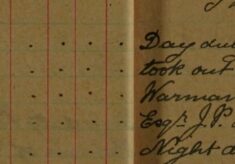 Day du
took out
Warman
Esqr J.P.
Night d